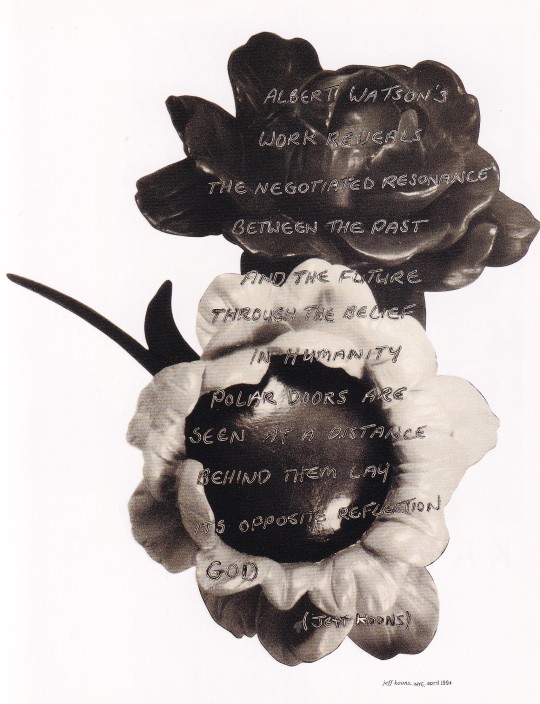 ALBERT WATSON'S
WORK REVEALS
THE NEGOTIATED RESONANCE
BETWEEN THE PAST
AND THE FUTURE
THROUGH THE BELIEF
IN HUMANITY
POLAR DOORS ARE
SEEN AT A DISTANCE
BEHIND THEM LAY
ITS OPPOSITE REFLECTION
GOD
(JEFF KOONS)
jeff koons, NYC, april 1994